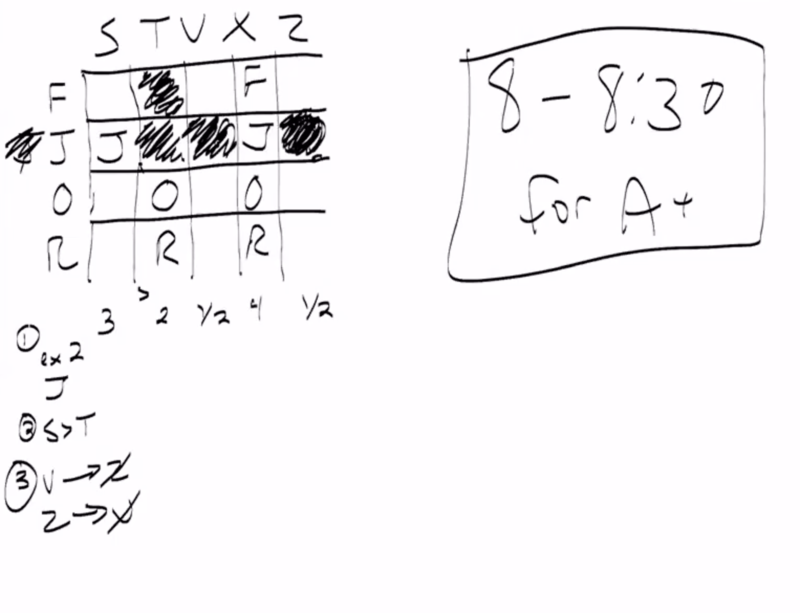 S T V X Z
F F
J J J
O O O
R R R
3 2 1/2 4 1/2
① ex 2
J
② S>T
③ V → Z
Z → V
8 - 8:30
for A+